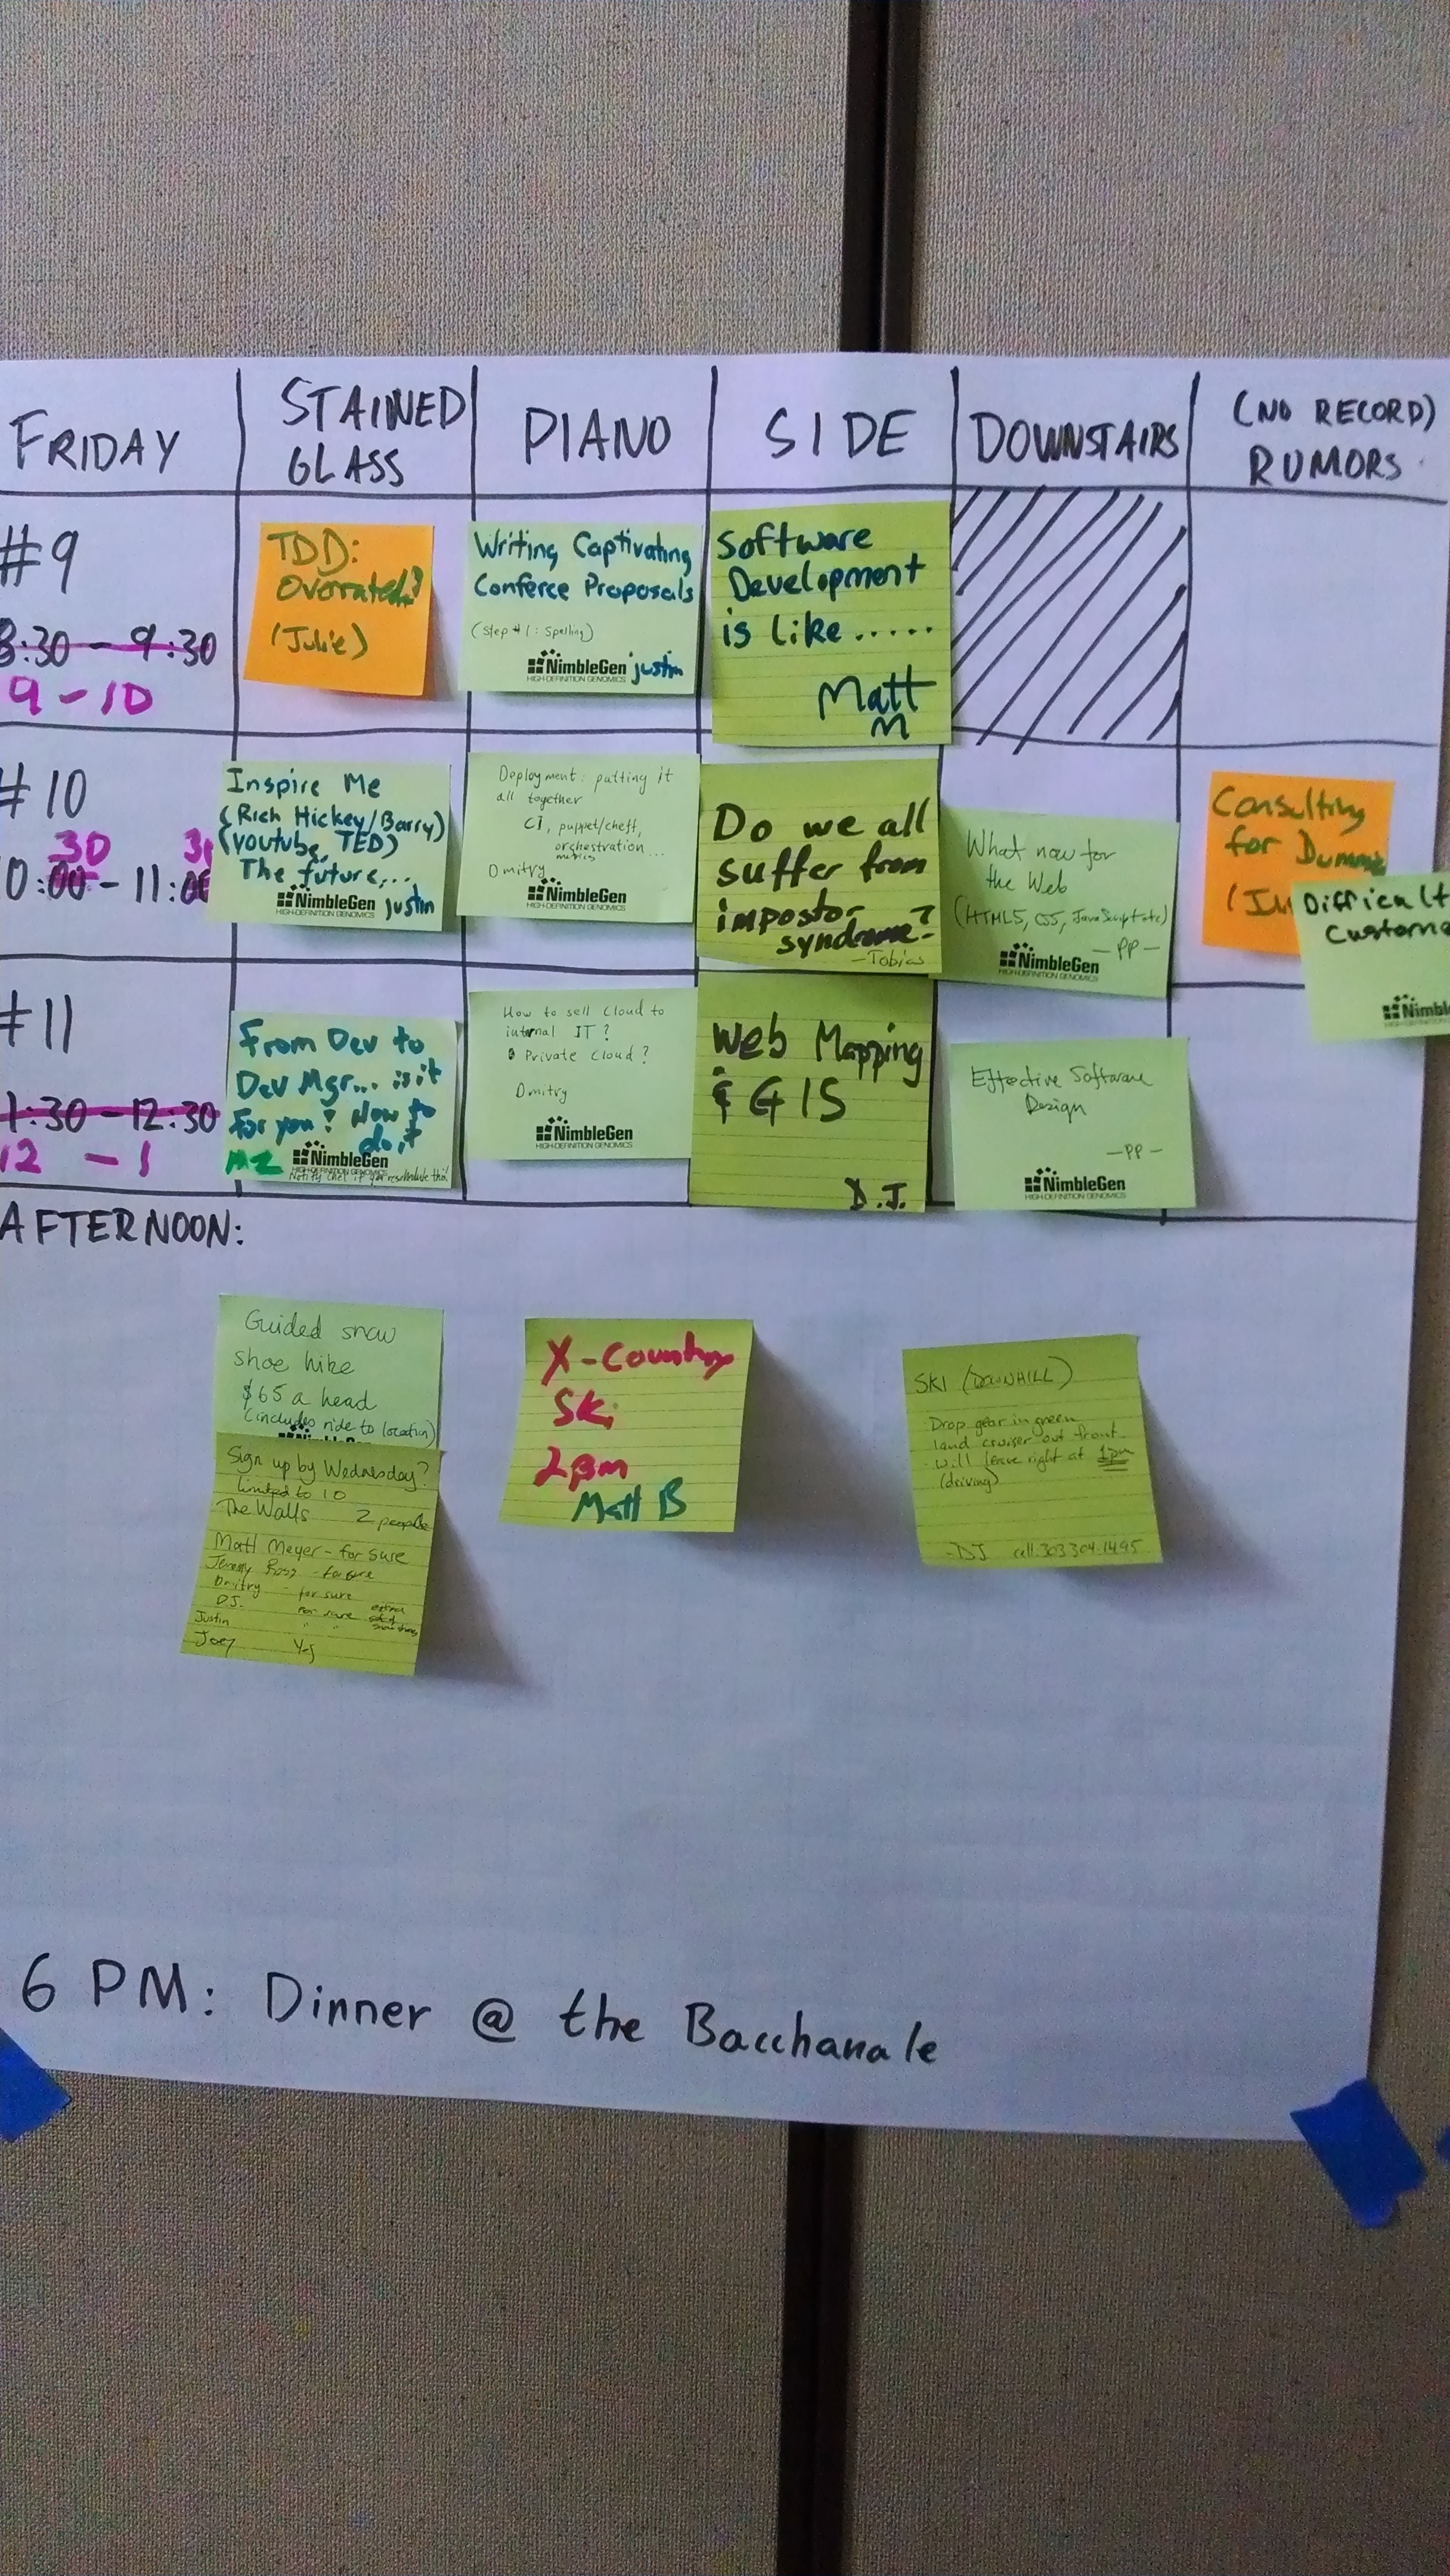 FRIDAY
STAINED
GLASS
PIANO
SIDE
DOWNSTAIRS
(NO RECORD)
RUMORS
#9
8:30 - 9:30
9 - 10
TDD:
Overrated?
(Julie)
Writing Captivating
Conferce Proposals
(Step #1: Spelling)
NimbleGen
HIGH-DEFINITION GENOMICS
justin
Software
Development
is like .....
Matt
M
#10
30
0:00 - 11:00
Inspire Me
(Rich Hickey/Barry)
(youtube, TED)
The future,...
NimbleGen
HIGH-DEFINITION GENOMICS
justin
Deployment: putting it
all together
CI, puppet/cheff,
orchestration...
metrics
Dmitry
NimbleGen
HIGH-DEFINITION GENOMICS
Do we all
suffer from
impostor
syndrome?
-Tobias
What now for
the Web
(HTML5, CSS, JavaScript etc)
-PP-
NimbleGen
HIGH-DEFINITION GENOMICS
Consulting
for
Difficult
Custome
Nimbl
#11
1:30 - 12:30
12 - 1
From Dev to
Dev Mgr... is it
for you? How to
do it
MZ
NimbleGen
HIGH-DEFINITION GENOMICS
Notify if you reschedule this!
How to sell cloud to
internal IT?
Private cloud?
Dmitry
NimbleGen
HIGH-DEFINITION GENOMICS
Web Mapping
& GIS
D.J.
Effective Software
Design
-PP-
NimbleGen
HIGH-DEFINITION GENOMICS
AFTERNOON:
Guided snow
shoe hike
$65 a head
(includes ride to location)
Sign up by Wednesday?
Limited to 10
The Walls 2 people
Matt Meyer - for sure
Jeremy - for sure
Dmitry - for sure
D.J. for sure
Justin " "
Joey Yes
X-Country
Ski
2pm
Matt B
SKI (DOWNHILL)
Drop gear in green
land cruiser out front
will leave right at 1pm
(driving)
-DJ cell 303 304-1495
6 PM: Dinner @ the Bacchanale